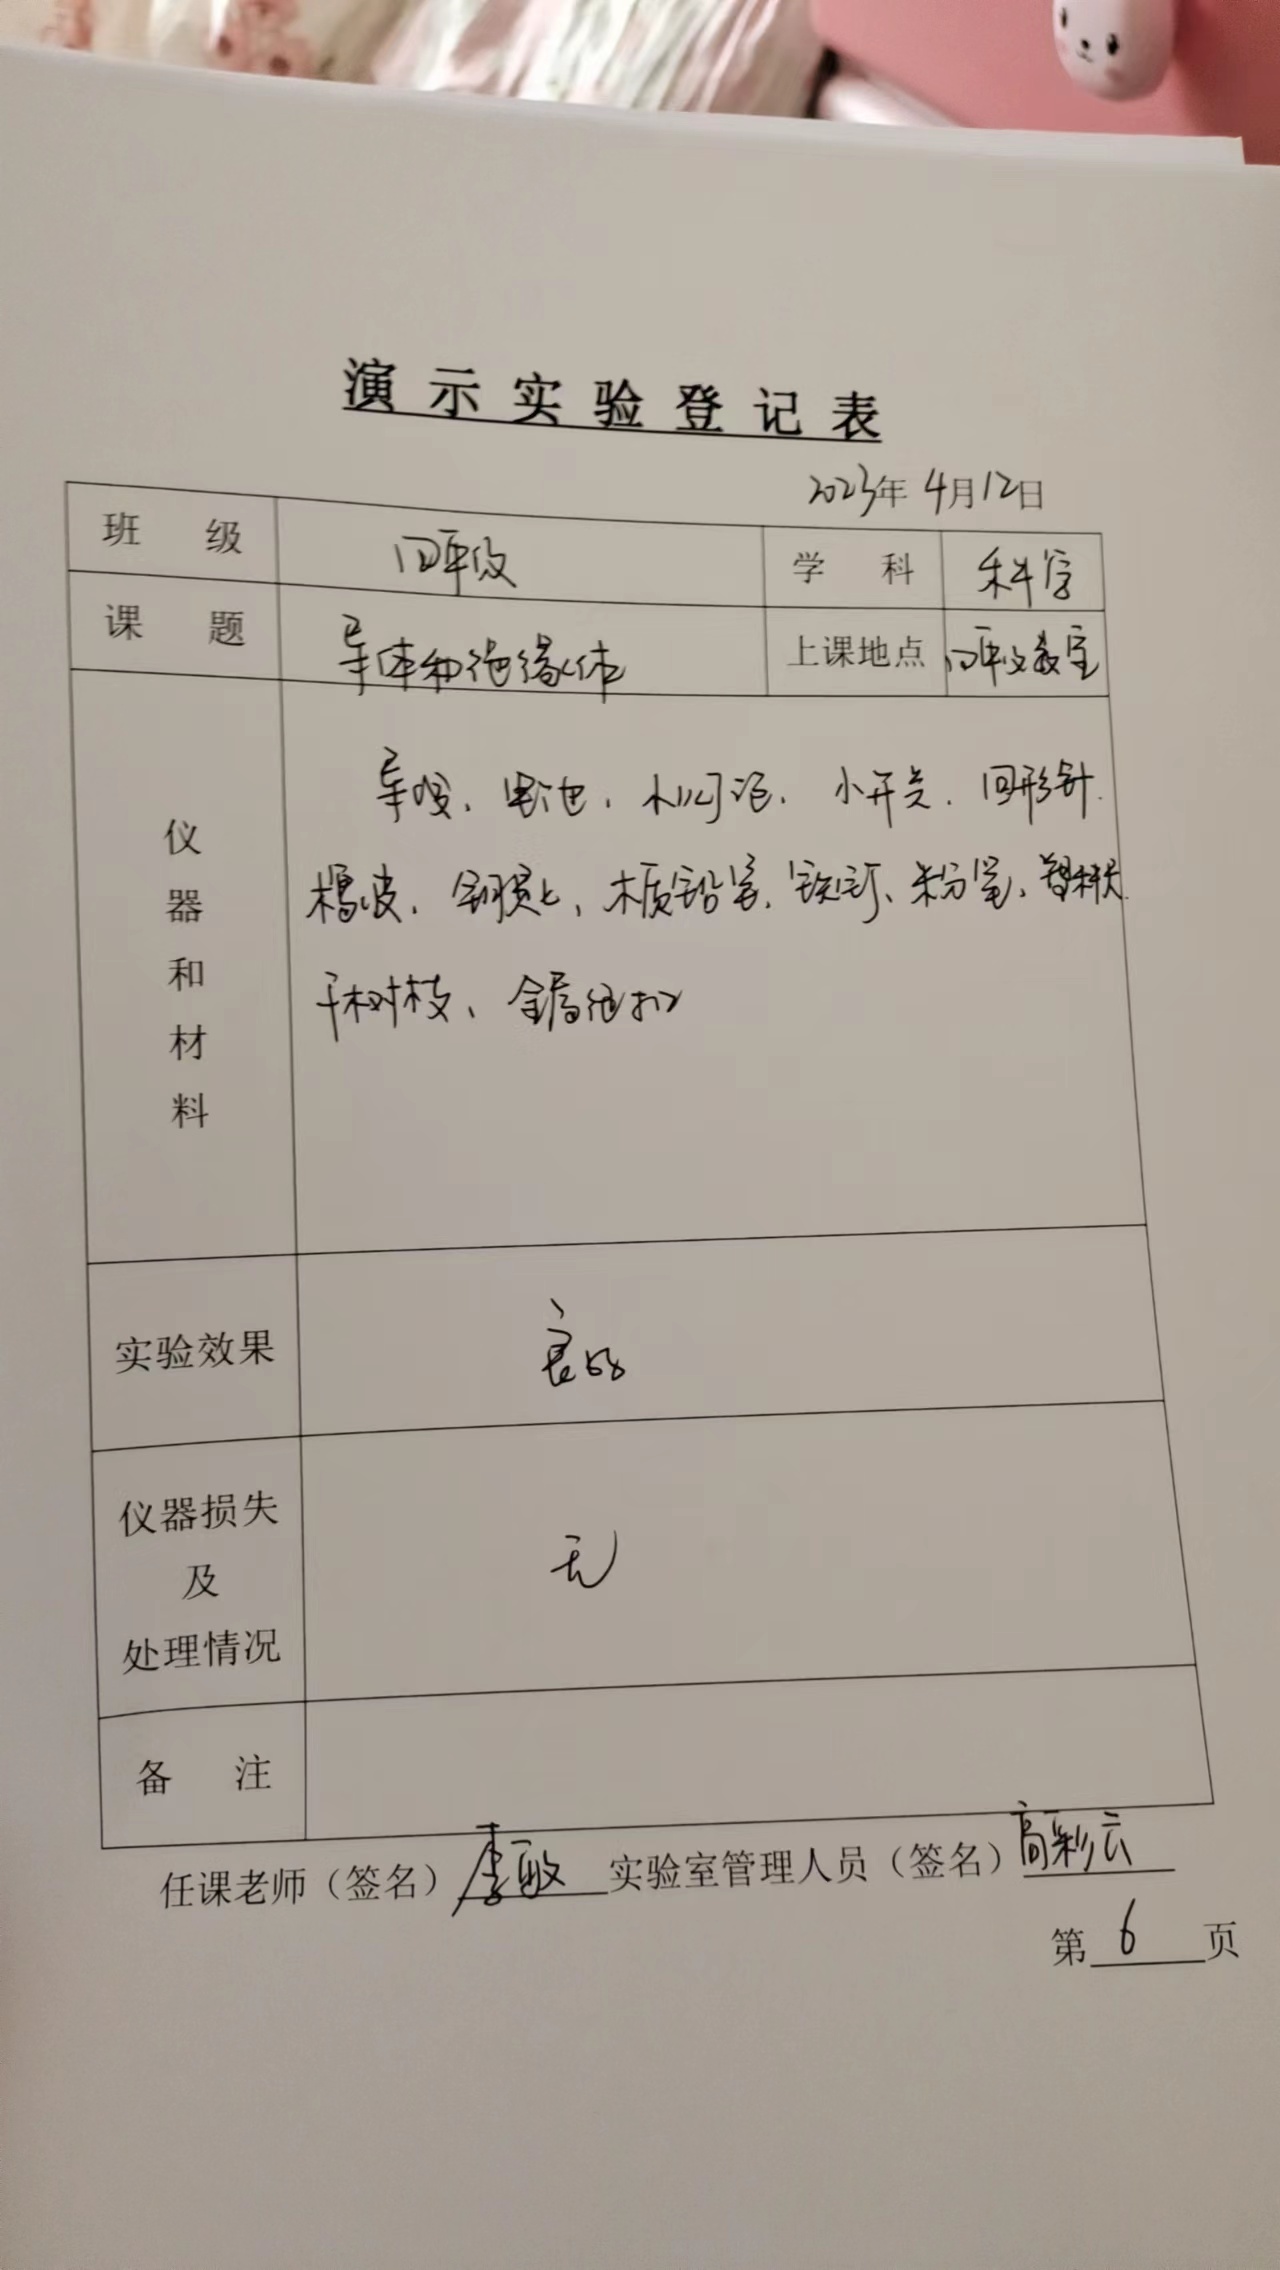 演示实验登记表
2023年4月12日
班 级 四年级 学 科 科学
课 题 导体和绝缘体 上课地点 四年级教室
仪器和材料
导线、电池、小灯泡、小开关、回形针、
橡皮、钢尺、木质铅笔、铁钉、粉笔、塑料尺
干树枝、金属纽扣
实验效果 良好
仪器损失
及 无
处理情况
备 注
任课老师（签名）李敏 实验室管理人员（签名）高彩云
第 6 页